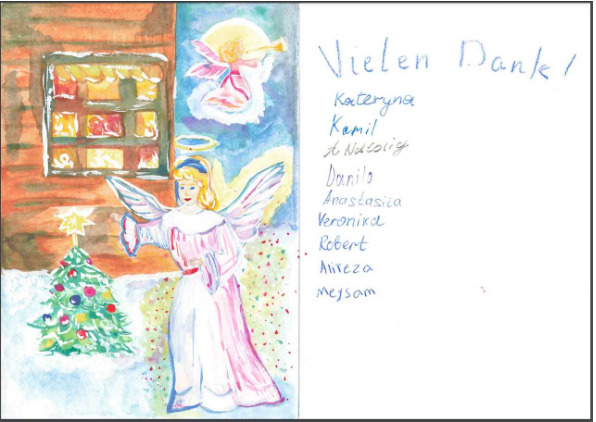 Vielen Dank!
Kateryna
Kamil
Danilo
Anastasiia
Veronika
Robert
Alireza
Meysam